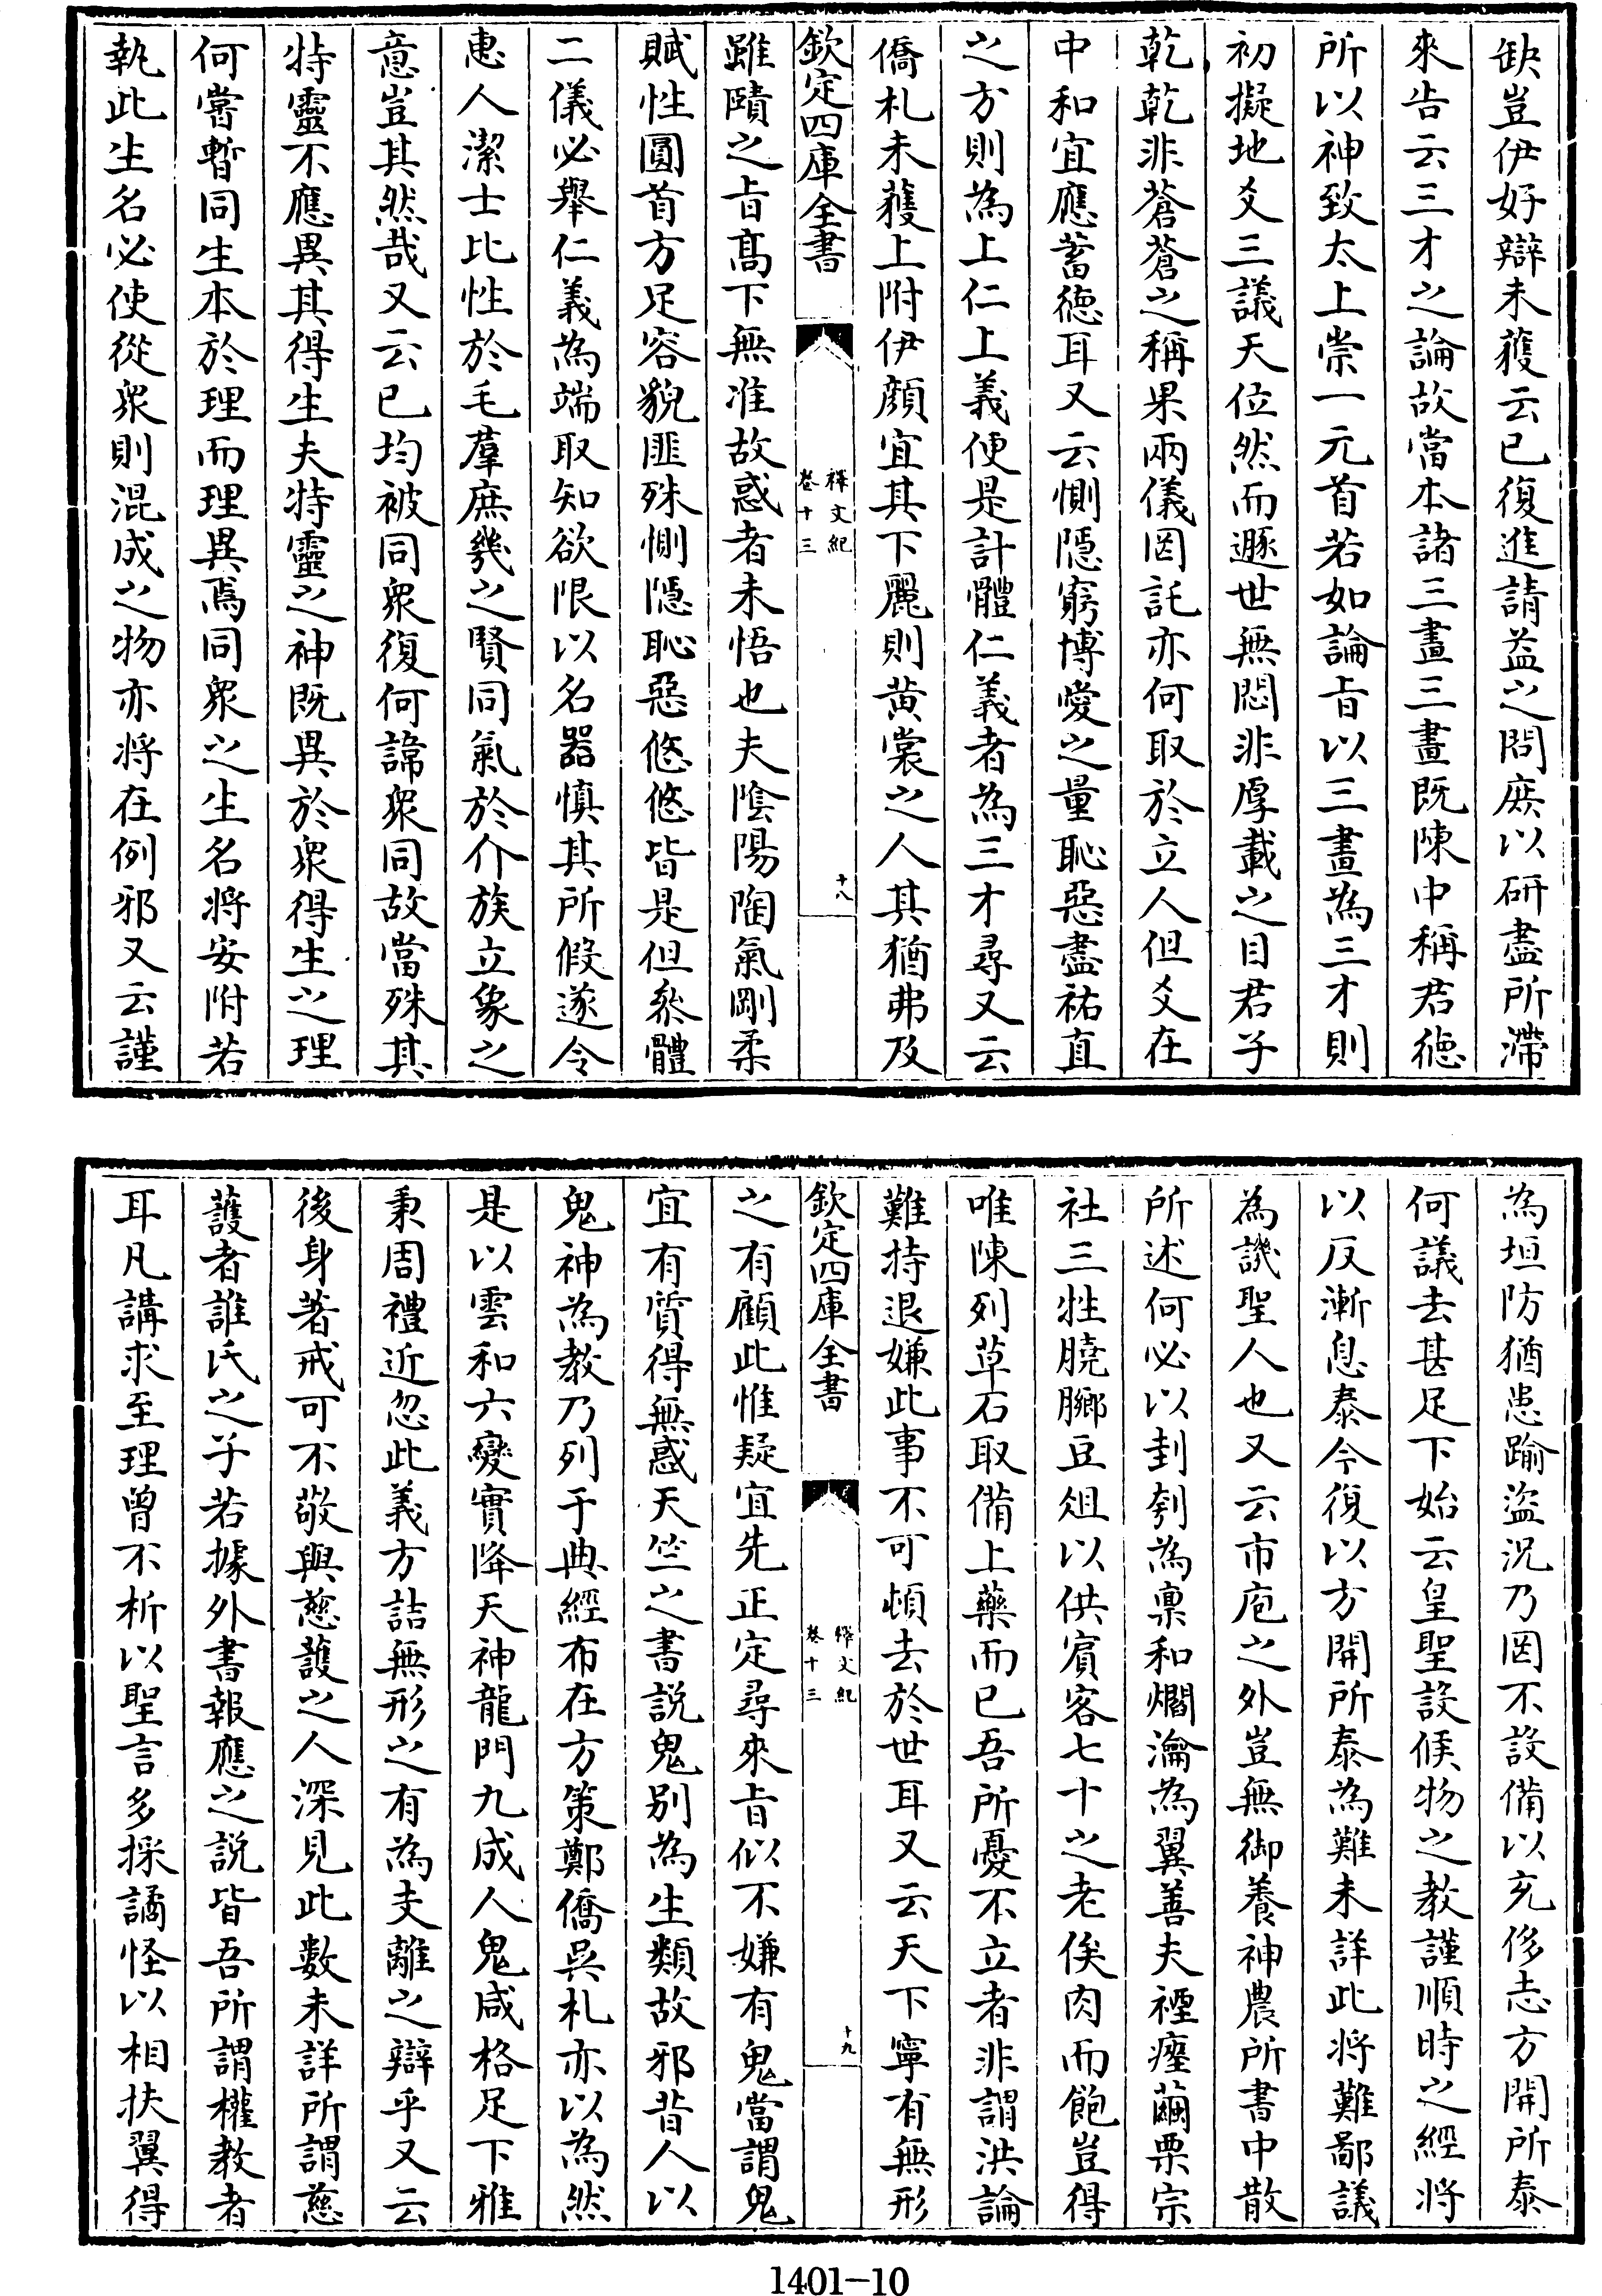 缺豈伊好辯未蒦云已復進請益之問庶以研盡所滯
來告云三才之論故當本諸三畫三畫既陳中稱君徳
所以神致太上崇一元首若如論㫖以三畫為三才則
初擬地爻三議天位然而遯世無悶非厚載之目君子
乾乾非蒼蒼之稱果兩儀罔託亦何取於立人但爻在
中和宜應蓄徳耳又云惻隠窮博愛之量恥惡盡祐直
之方則為上仁上義便是計體仁義者為三才尋又云
僑札未蒦上附伊顔宜其下麗則黄裳之人其猶弗及
欽定四庫全書
釋文紀
卷十三
十八
雖賾之㫖髙下無准故惑者未悟也夫隂陽陶氣剛柔
賦性圓首方足容貌匪殊惻隠恥惡悠悠皆是但參體
二儀必舉仁義為端取知欲限以名器慎其所假遂令
恵人潔士比性於毛羣庶幾之賢同氣於介族立象之
意豈其然哉又云已均被同衆復何諦衆同故當殊其
特靈不應異其得生夫特靈之神既異於衆得生之理
何甞暫同生本於理而理異焉同衆之生名將安附若
執此生名必使從衆則混成之物亦将在例邪又云謹
為垣防猶患踰盜況乃罔不設備以充侈志方開所泰
何議去甚足下始云皇聖設候物之教謹順時之經将
以反漸息泰今復以方開所泰為難未詳此将難鄙議
為譏聖人也又云市庖之外豈無御養神農所書中散
所述何必以封刳為稟和爓瀹為翼善夫禋瘞繭栗宗
社三牲膮膷豆俎以供賔客七十之老俟肉而飽豈得
唯陳列草石取備上藥而已吾所憂不立者非謂洪論
難持退嫌此事不可頓去於世耳又云天下寧有無形
欽定四庫全書
釋文紀
卷十三
十九
之有顧此惟疑宜先正定尋來㫖似不嫌有鬼當謂鬼
宜有質得無惑天竺之書説鬼别為生類故邪昔人以
鬼神為教乃列于典經布在方策鄭僑吴札亦以為然
是以雲和六變實降天神龍門九成人鬼咸格足下雅
秉周禮近忽此義方詰無形之有為支離之辯乎又云
後身著戒可不敬與慈護之人深見此數未詳所謂慈
護者誰氏之子若據外書報應之説皆吾所謂權教者
耳凡講求至理曾不析以聖言多採譎怪以相扶翼得
1401-10